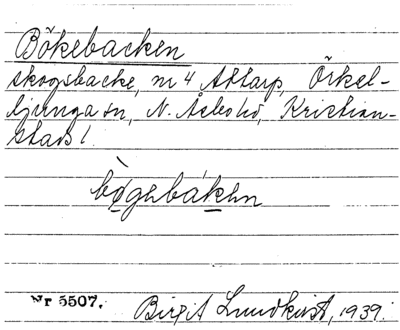 Bökebacken
skogsbacke, nr 4 Attarp, Örkel-
ljunga sn, N. Åsbo hd, Kristian-
stads l.
bø̀gəbákən
Nr 5507.
Birgit Lundkvist, 1939.